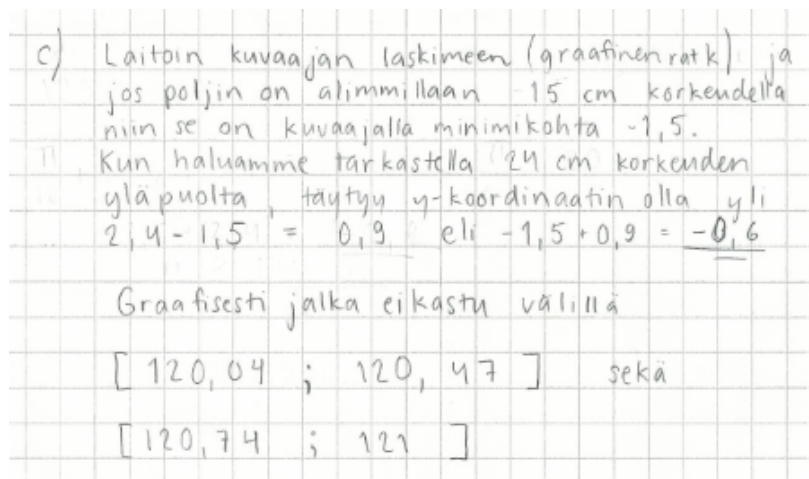 c) Laitoin kuvaajan laskimeen (graafinen ratk) ja
jos poljin on alimmillaan 15 cm korkeudella
niin se on kuvaajalla minimikohta -1,5.
Kun haluamme tarkastella 24 cm korkeuden
yläpuolta, täytyy y-koordinaatin olla yli
2,4 - 1,5 = 0,9 eli -1,5 + 0,9 = -0,6
Graafisesti jalka ei kastu välillä
[ 120,04 ; 120,47 ] sekä
[120,74 ; 121 ]